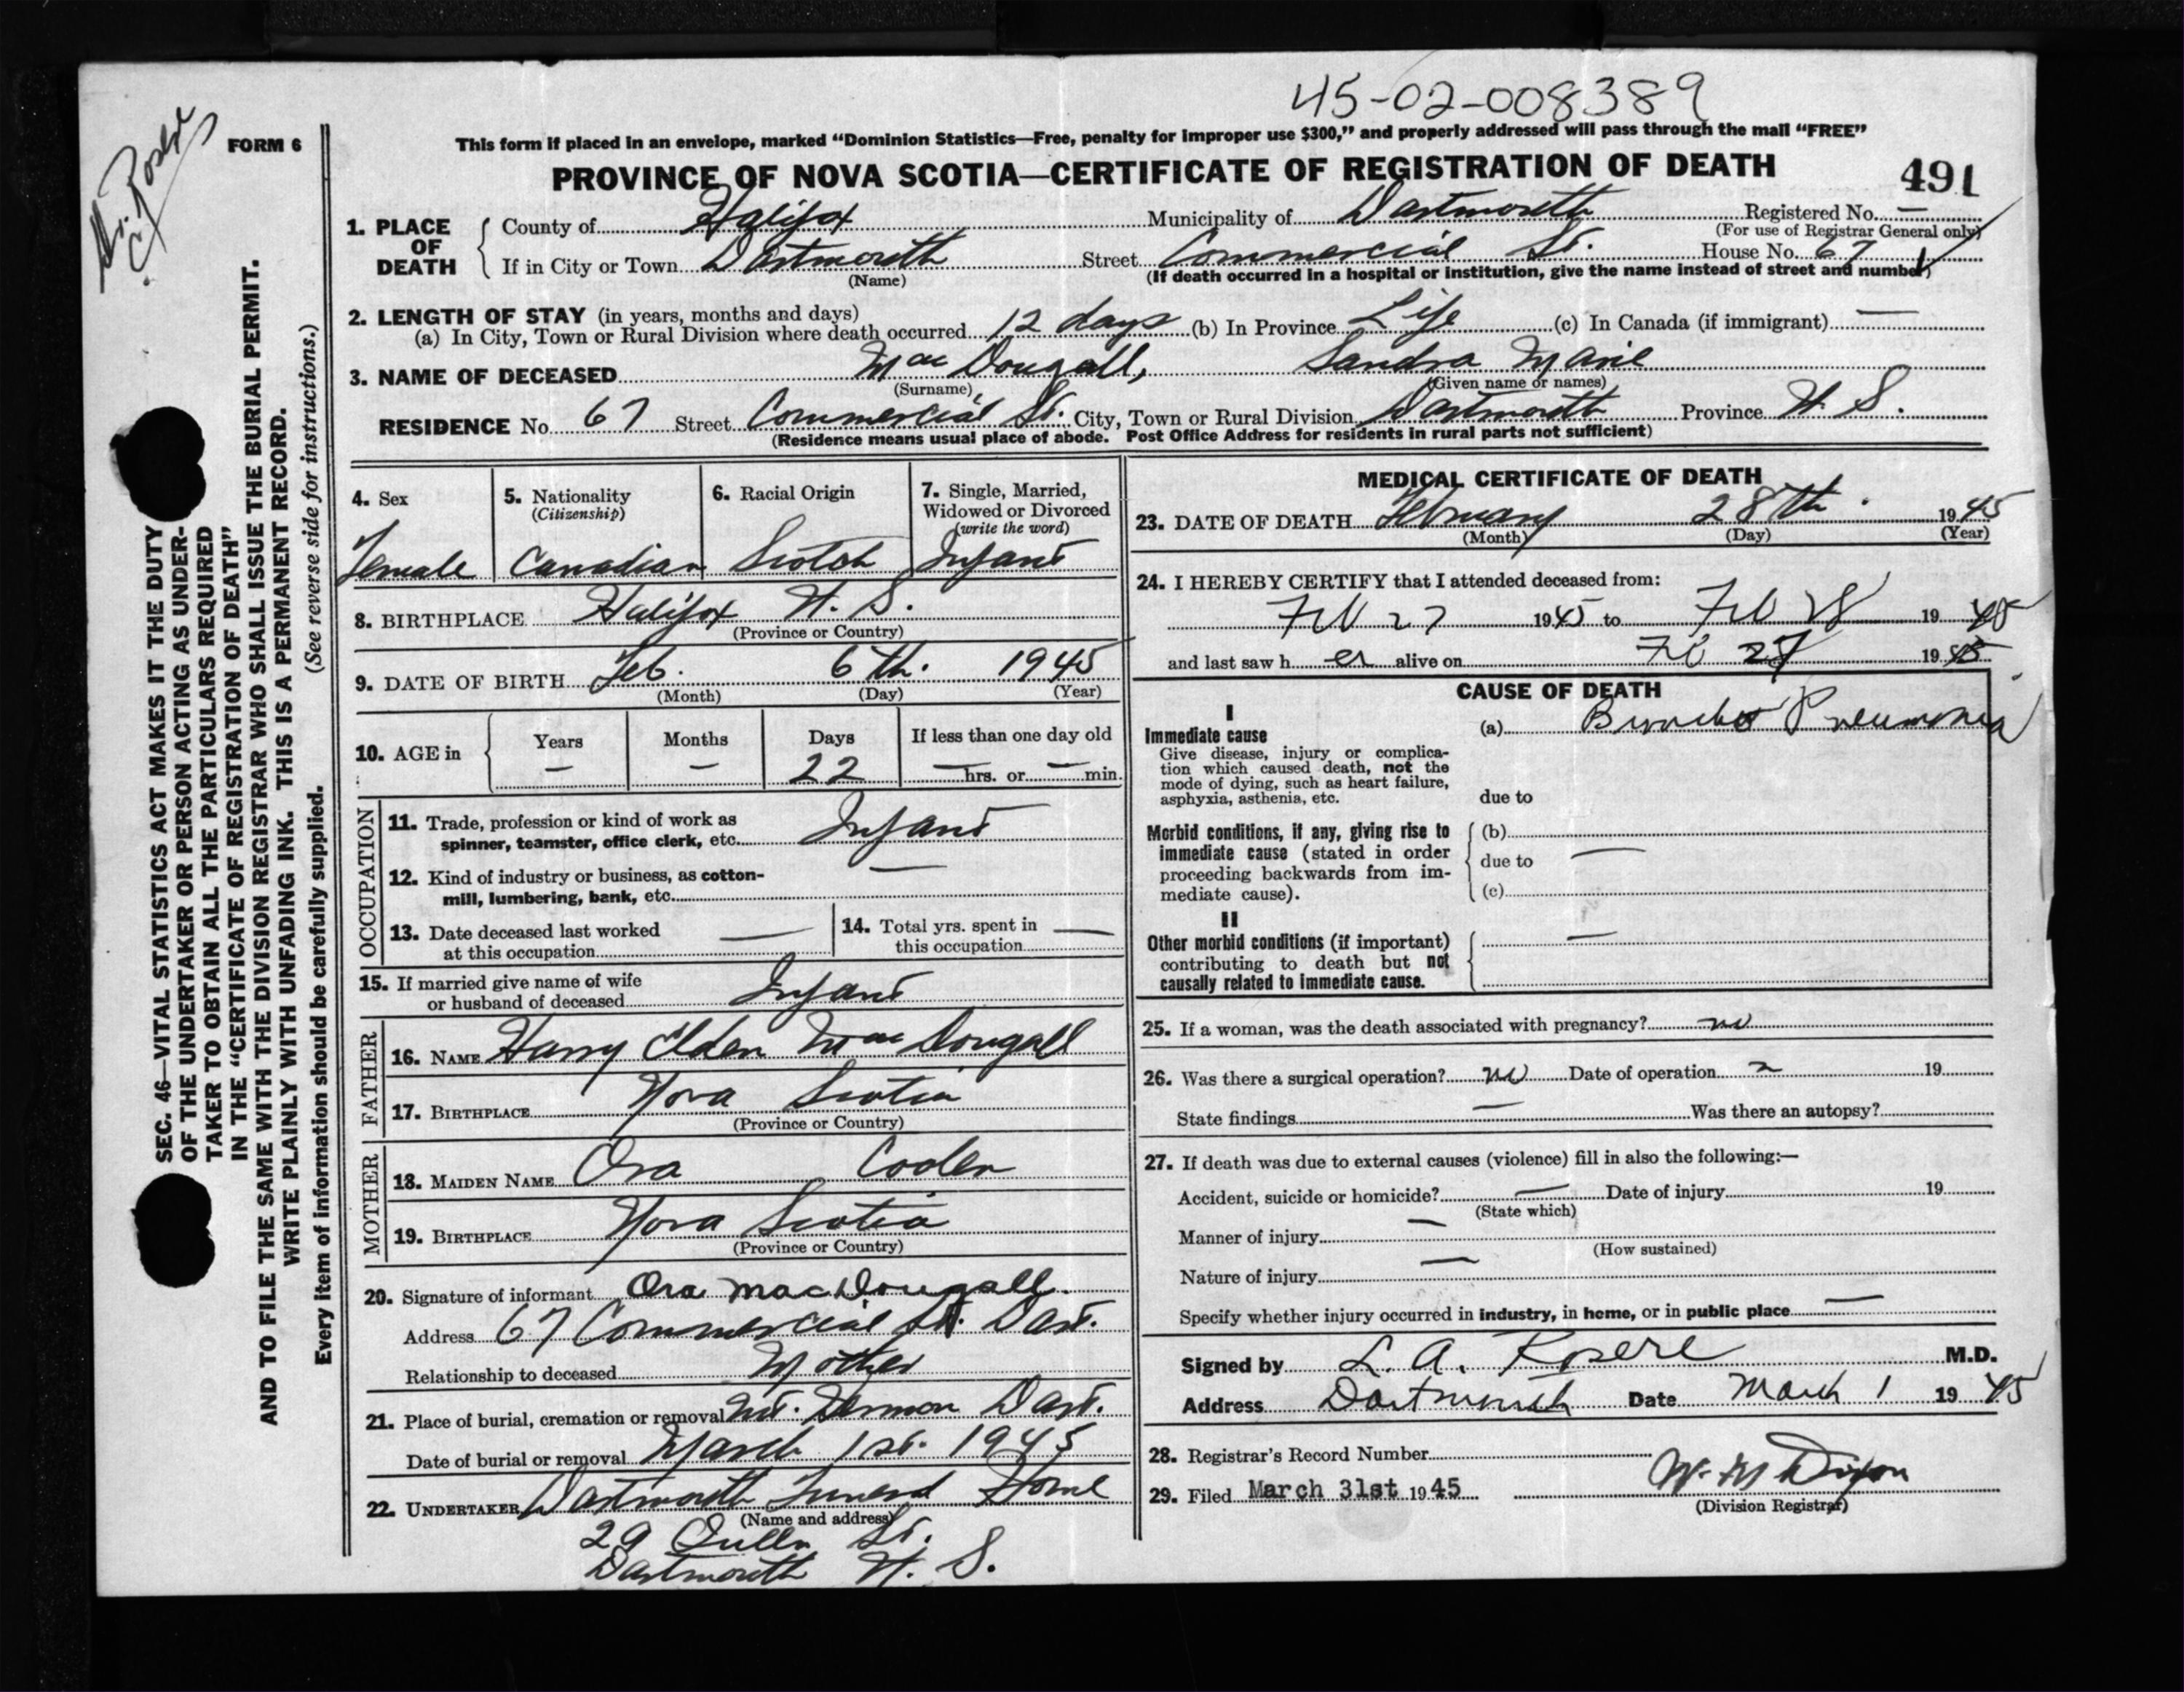 45-02-008389
FORM 6
This form if placed in an envelope, marked “Dominion Statistics—Free, penalty for improper use $300,” and properly addressed will pass through the mail “FREE”
PROVINCE OF NOVA SCOTIA—CERTIFICATE OF REGISTRATION OF DEATH
491
1. PLACE OF DEATH
County of Halifax Municipality of Dartmouth Registered No. —
(For use of Registrar General only)
If in City or Town Dartmouth Street Commercial St. House No. 67
(Name) (If death occurred in a hospital or institution, give the name instead of street and number)
2. LENGTH OF STAY (in years, months and days)
(a) In City, Town or Rural Division where death occurred 12 days (b) In Province Life (c) In Canada (if immigrant) —
3. NAME OF DECEASED MacDougall, Sandra Marie
(Surname) (Given name or names)
RESIDENCE No. 67 Street Commercial St. City, Town or Rural Division Dartmouth Province N. S.
(Residence means usual place of abode. Post Office Address for residents in rural parts not sufficient)
4. Sex
Female
5. Nationality
(Citizenship)
Canadian
6. Racial Origin
Scotch
7. Single, Married,
Widowed or Divorced
(write the word)
Infant
8. BIRTHPLACE Halifax N. S.
(Province or Country)
9. DATE OF BIRTH Feb. 6th. 1945
(Month) (Day) (Year)
10. AGE in
Years Months Days If less than one day old
— — 22 — hrs. or — min.
OCCUPATION
11. Trade, profession or kind of work as
spinner, teamster, office clerk, etc. Infant
12. Kind of industry or business, as cotton-
mill, lumbering, bank, etc. —
13. Date deceased last worked
at this occupation —
14. Total yrs. spent in
this occupation —
15. If married give name of wife
or husband of deceased Infant
FATHER
16. NAME Harry Elden MacDougall
17. BIRTHPLACE Nova Scotia
(Province or Country)
MOTHER
18. MAIDEN NAME Ora
19. BIRTHPLACE Nova Scotia
(Province or Country)
20. Signature of informant Ora MacDougall.
Address 67 Commercial St. Dart.
Relationship to deceased Mother
21. Place of burial, cremation or removal Mt. Hermon Dart.
Date of burial or removal March 1st. 1945
22. UNDERTAKER Dartmouth Funeral Home
(Name and address)
29 Queen St.
Dartmouth N. S.
MEDICAL CERTIFICATE OF DEATH
23. DATE OF DEATH February 28th. 1945
(Month) (Day) (Year)
24. I HEREBY CERTIFY that I attended deceased from:
Feb 27 1945 to Feb 28 1945
and last saw h er alive on Feb 27 1945
CAUSE OF DEATH
I
Immediate cause
Give disease, injury or complica-
tion which caused death, not the
mode of dying, such as heart failure,
asphyxia, asthenia, etc.
(a) Broncho Pneumonia
due to
Morbid conditions, if any, giving rise to
immediate cause (stated in order
proceeding backwards from im-
mediate cause).
(b)
due to —
(c)
II
Other morbid conditions (if important)
contributing to death but not
causally related to immediate cause.
—
25. If a woman, was the death associated with pregnancy? no
26. Was there a surgical operation? no Date of operation 19
State findings — Was there an autopsy?
27. If death was due to external causes (violence) fill in also the following:—
Accident, suicide or homicide? — Date of injury 19
(State which)
Manner of injury —
(How sustained)
Nature of injury —
Specify whether injury occurred in industry, in home, or in public place —
Signed by L. A. Rosere M.D.
Address Dartmouth Date March 1 1945
28. Registrar's Record Number
29. Filed March 31st 1945 W. M Dixon
(Division Registrar)
SEC. 46—VITAL STATISTICS ACT MAKES IT THE DUTY
OF THE UNDERTAKER OR PERSON ACTING AS UNDER-
TAKER TO OBTAIN ALL THE PARTICULARS REQUIRED
IN THE “CERTIFICATE OF REGISTRATION OF DEATH”
AND TO FILE THE SAME WITH THE DIVISION REGISTRAR WHO SHALL ISSUE THE BURIAL PERMIT.
WRITE PLAINLY WITH UNFADING INK. THIS IS A PERMANENT RECORD.
Every item of information should be carefully supplied. (See reverse side for instructions.)